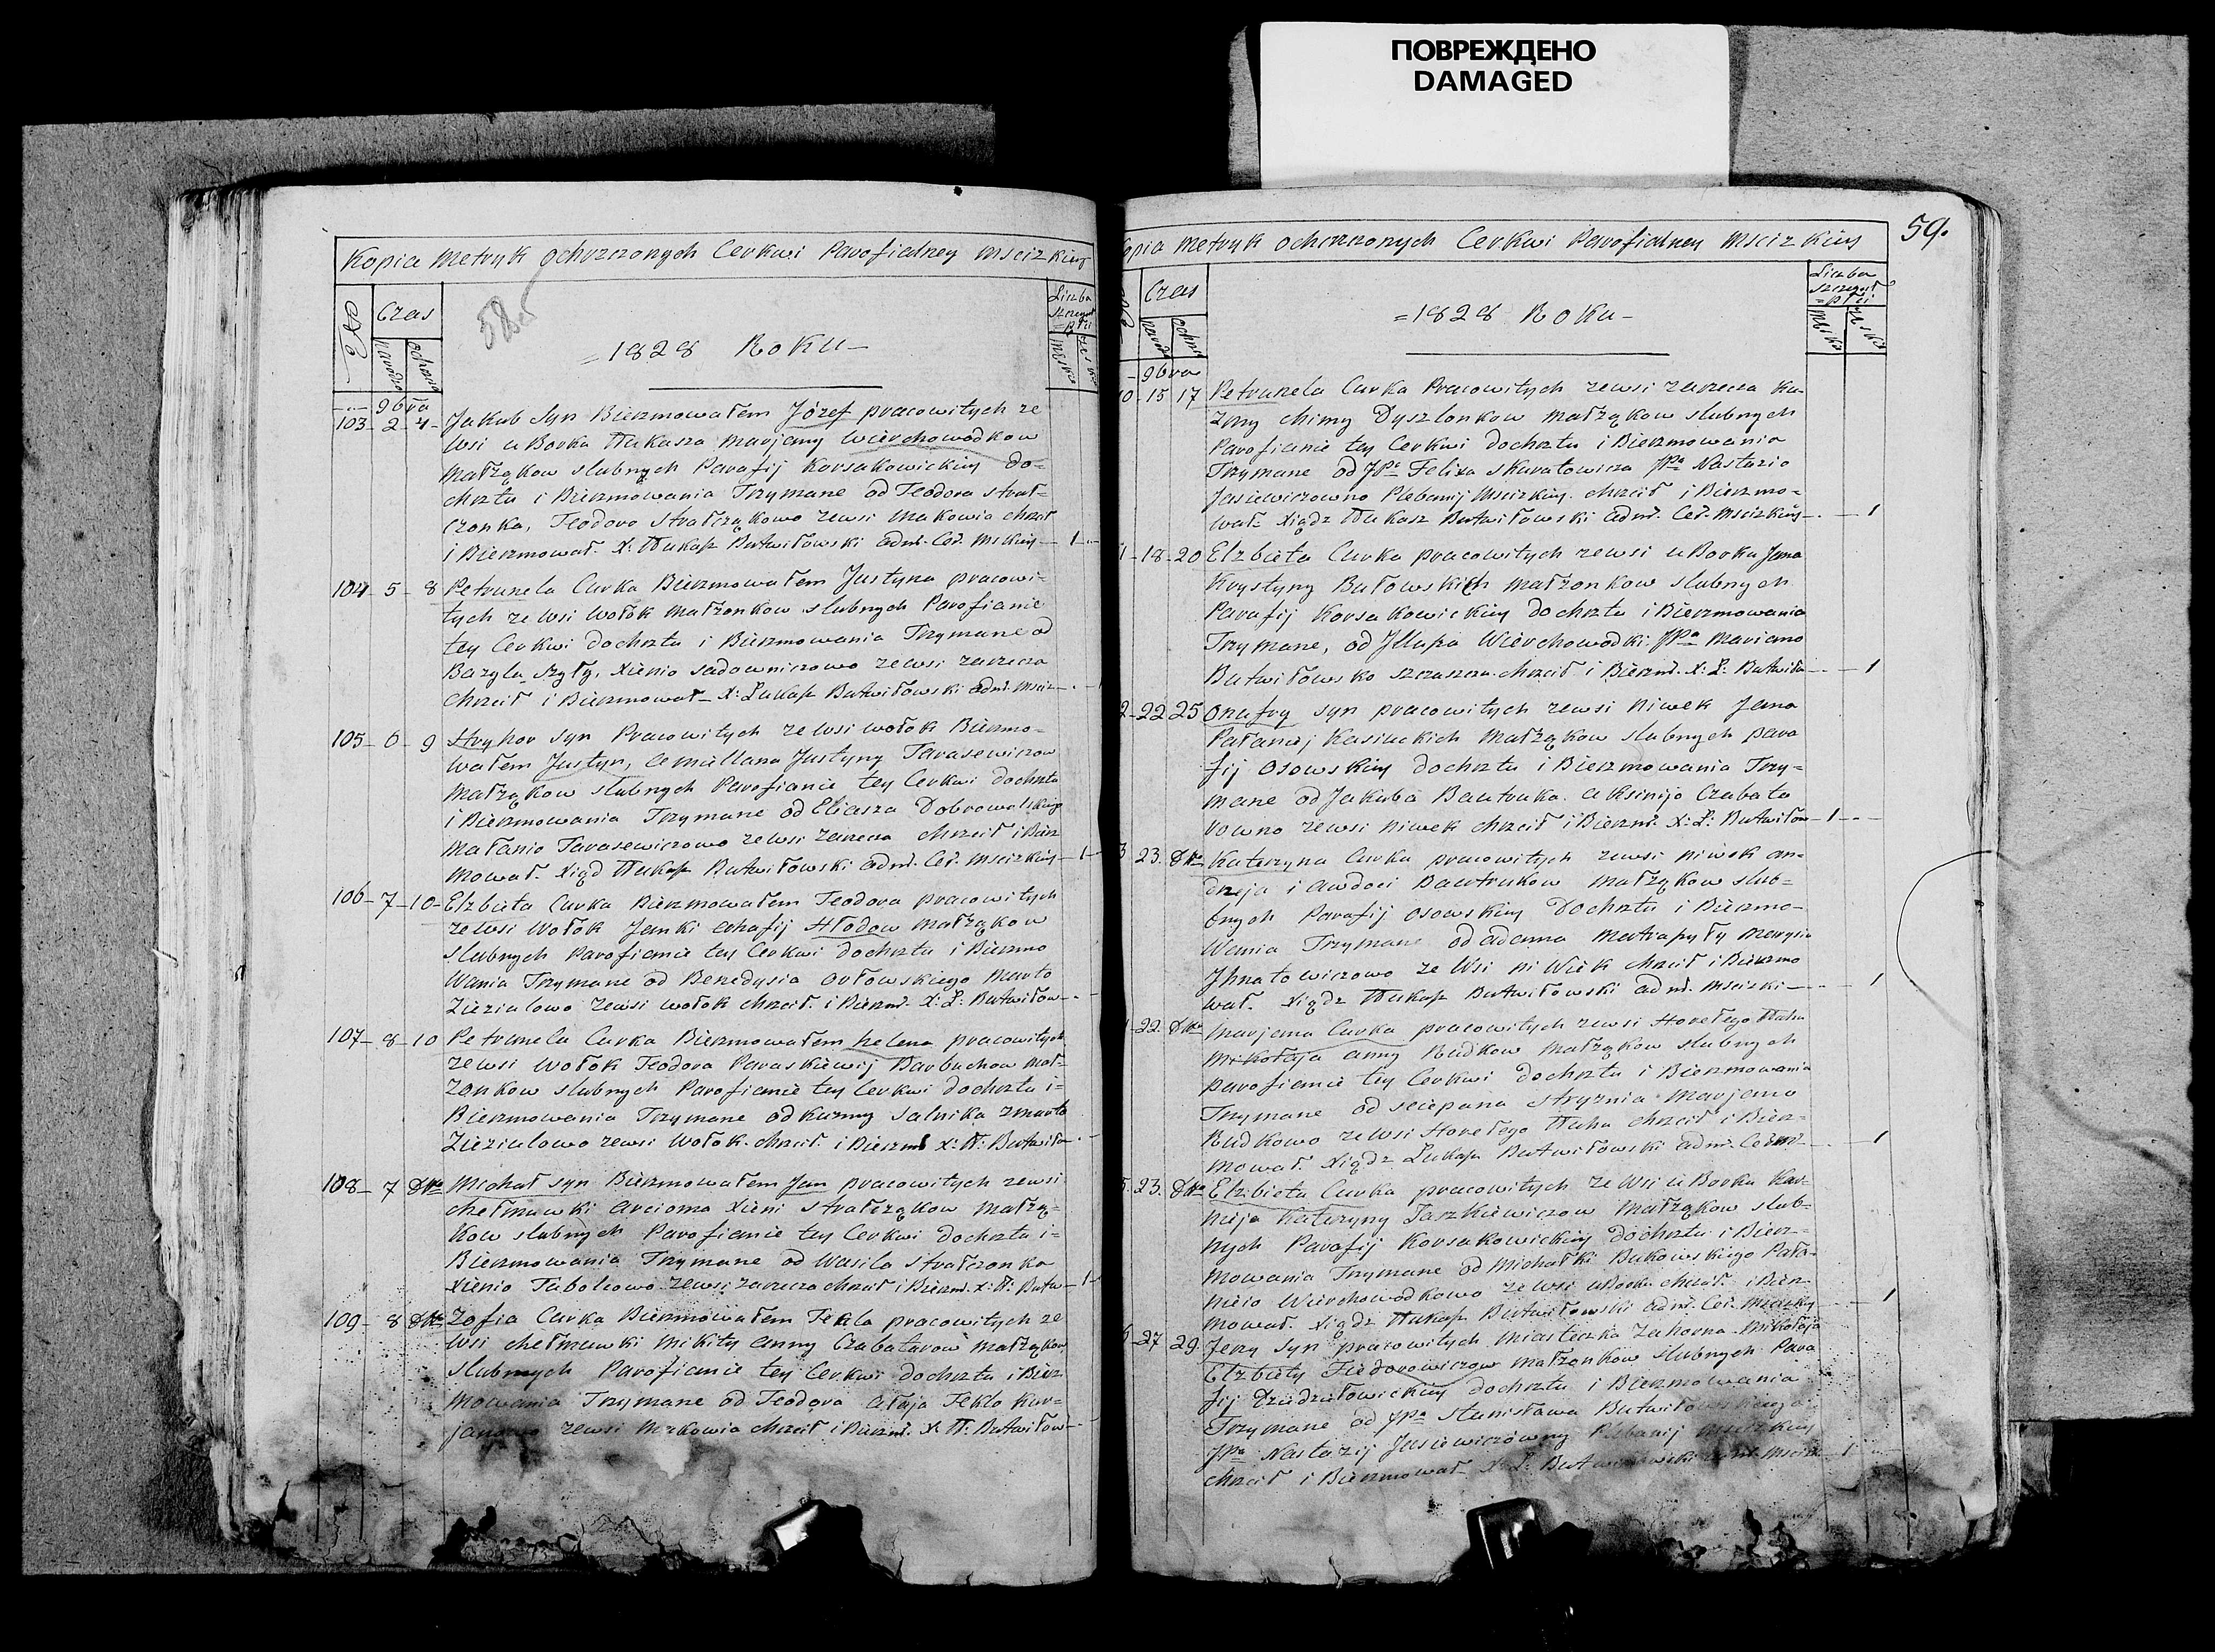 ПОВРЕЖДЕНО
DAMAGED
Kopia Metryk ochrzczonych Cerkwi Parofialney Mscizkiey
№
Czas
narodze
ochrzcze
58
Liczba
szczegul
= płci
męska
=1828 Roku-
9bra
103 2 4 Jakub Syn Bierzmowałem Józef pracowitych ze
wsi u Borka Łukasza Marjany Wierchowodkow
Małżąkow slubnych Parafij Korsakowickiey do=
chrztu i Bierzmowania Trzymane od Teodora strał=
czonka, Teodoro Strałcząkowo zewsi Makowia chrzcił
i Bierzmował. X: Łukasz Butwiłowski adm. Cer. Msckiey 1
104 5 8 Petrunela Curka Bierzmowałem Justyna pracowi=
tych ze wsi Wołok Małżonkow slubnych Parofianie
tey Cerkwi dochrztu i Bierzmowania Trzymane od
Bazyla Szyły, Xienio Sadowniczowo zewsi zarzecza
Chrzcił i Bierzmował X: Łukasz Butwiłowski adm. Msciz
105 6 9 Hryhor syn Pracowitych ze wsi wołok Bierzmo=
wałem Justyn, Justyny Tarasewiczow
Małżąkow slubnych Parofianie tey Cerkwi dochrztu
i Bierzmowania Trzymane od Eliasza Dobrowolskiego
Małanio Tarasewiczowo zewsi Zarzecza chrzcił i Bierz
mował. Xiąd Łukasz Butwiłowski adm. Cer. Mscizkiey 1
106 7 10 Elzbieta Curka Bierzmowałem Teodora pracowitych
zewsi Wołok Janki ahafij Hłodow Małżąkow
slubnych Parofianie tey Cerkwi dochrztu i Bierzmo
wania Trzymane od Benedysia Orłowskiego Marto
Zieziulowo zewsi wołok chrzcił. i Bierzm. X: Ł: Butwiłow
107 8 10 Petrunela Curka Bierzmowałem helena pracowitych
zewsi wołok Teodora Paraskiewij Barbuchow Mał=
żonkow slubnych Parofianie tey Cerkwi dochrztu i=
Bierzmowania Trzymane od Kuzmy Salnika Zmarto
Zieziulowo zewsi wołok. chrzcił. i Bierzm X: Ł: Butwiło
108 7 Dto Michał syn Bierzmowałem Jan pracowitych zewsi
chełmowki arcioma Xieni Strałcząkow Małżą=
kow slubnych Parofianie tey Cerkwi dochrztu i=
Bierzmowania Trzymane od Wasila Strałczonka
Xienio Tabolcowo zewsi zarzecza chrzcił i Bierzm. X: Ł: Butw 1
109 8 Dto Zofia Curka Bierzmowałem Tekla pracowitych ze
wsi chełmowki Mikity anny Czabatarow Małżąkow
slubnych Parofianie tey Cerkwi dochrztu i Bierz
mowania Trzymane od Teodora ałaja Teklo Kur=
janowo zewsi Makowia chrzcił i Bierzm. X Ł: Butwiłow
59.
opia Metryk ochrzczonych Cerkwi Parofialney Mscizkiey
Czas
narodz
ochrz
Liczba
szczegul
=płci
męska
żeńska
=1828 Roku-
9bra
10 15 17 Petrunela Curka Pracowitych zewsi zarzecza Ku=
zmy chimy Dyszlonkow Małżąkow slubnych
Parofianie tey Cerkwi dochrztu i Bierzmowania
Trzymane od JPa Felixa Skuratowicza JPa Nastazio
Jasiewiczowno Plebanij Mscizkiey. chrzcił i Bierzmo=
wał Xiądz Łukasz Butwiłowski adm. Cer. Mscizkiey 1
1 18 20 Elzbieta Curka pracowitych zewsi u Borka Jana
Krystyny Bułowskich Małżonkow slubnych
Parafij Korsakowickiey dochrztu i Bierzmowania
Trzymane, od Wierchowodki JPa Mariano
Butwiłowsko chrzcił i Bierzm. X: Ł: Butwiło 1
2 22 25 Onufry syn pracowitych zewsi Niwek Jana
Pałanij Kasiuckich Małżąkow slubnych para
fij Osowskiey dochrztu i Bierzmowania Trzy=
mane od Jakuba Bautruka. aksinijo Czabata
rowno zewsi Niwek chrzcił i Bierzm. X: Ł: Butwiłow 1
3 23. Dto Katerzyna Curka pracowitych zewsi Niwek an=
drzeja i awdoci Bautrukow Małżąkow slub=
bnych Parafij Osowskiey Dochrztu i Bierzmo=
wania Trzymane od adama Matrapyły Marysio
Jhnatowiczowo ze wsi Niwek chrzcił i Bierzmo
wał. Xiądz Łukasz Butwiłowski adm. Mscizki 1
22. Dto Marjana Curka pracowitych zewsi Horełego Łuhu
Mikołaja anny Rudkow Małżąkow slubnych
parofianie tey Cerkwi dochrztu i Bierzmowania
Trzymane od sciepana stryznia Marjano
Rudkowo zewsi Horełego Łuhu chrzcił i Bierz=
mował. Xiądz Łukasz Butwiłowski adm. 1
5. 23. Dto Elzbieta Curka pracowitych ze wsi u Borka Kar=
nieja Kateryny Jaszkiewiczow Małżąkow slub=
nych Parafij Korsakowickiey dochrztu i Bierz=
mowania Trzymane od Michałki Bukowskiego Pała=
nieio Wierchowodkowo zewsi uBorka chrzcił. i Bierz
mował. Xiądz Łukasz Butwiłowski adm. Cer. Mscizkiey 1
6 27 29 Jerzy syn pracowitych Miasteczka Zahorna Mikołaja
Elzbiety Fiedorowiczow Małżonkow slubnych Para
fij dochrztu i Bierzmowania
Trzymane od JPa Stanisława Butwiłowskiego
JPa Nastazij Jasiewiczówny Plebanij Mscizkiey
chrzcił i Bierzmował X: Ł: Butwiłowski adm. Msciz 1